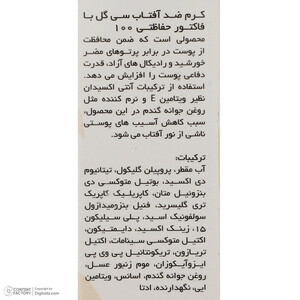 کرم ضد آفتاب سی گل با
فاکتور حفاظتی ۱۰۰
محصولی است که ضمن محافظت
از پوست در برابر پرتوهای مضر
خورشید و رادیکال های آزاد، قدرت
دفاعی پوست را افزایش می دهد.
استفاده از ترکیبات آنتی اکسیدان
نظیر ویتامین E و نرم کننده مثل
روغن جوانه گندم در این محصول،
سبب کاهش آسیب های پوستی
ناشی از نور آفتاب می شود.
ترکیبات:
آب مقطر، پروپیلن گلیکول، تیتانیوم
دی اکسید، بوتیل متوکسی دی
بنزوئیل متان، کاپریلیک کاپریک
تری گلیسرید، فنیل بنزومیدازول
سولفونیک اسید، پلی سیلیکون
۱۵، زینک اکسید، دایمتیکون،
اکتیل متوکسی سینامات، اکتیل
تریازون، تریاکونتانیل پی وی پی
ایزوآیکوزان، موم زنبور عسل،
روغن جوانه گندم، اسانس، ویتامین
ایی، نگهدارنده، ادتا